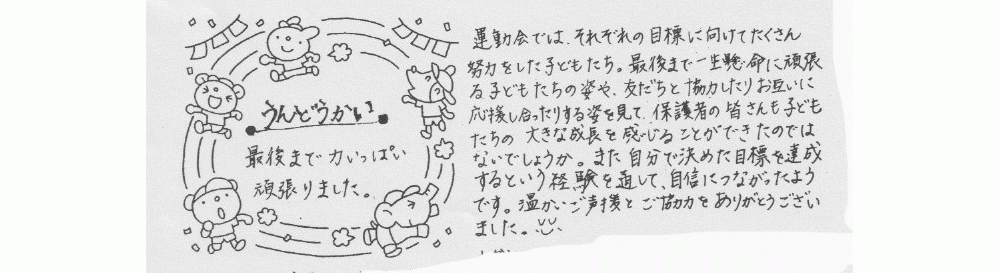 うんどうかい
最後まで力いっぱい
頑張りました。
運動会では、それぞれの目標に向けてたくさん
努力をした子どもたち。最後まで一生懸命に頑張
る子どもたちの姿や、友だちと協力したりお互いに
応援し合ったりする姿を見て、保護者の皆さんも子ども
たちの大きな成長を感じることができたのでは
ないでしょうか。また自分で決めた目標を達成
するという経験を通して、自信につながったよう
です。温かいご声援とご協力をありがとうござい
ました。